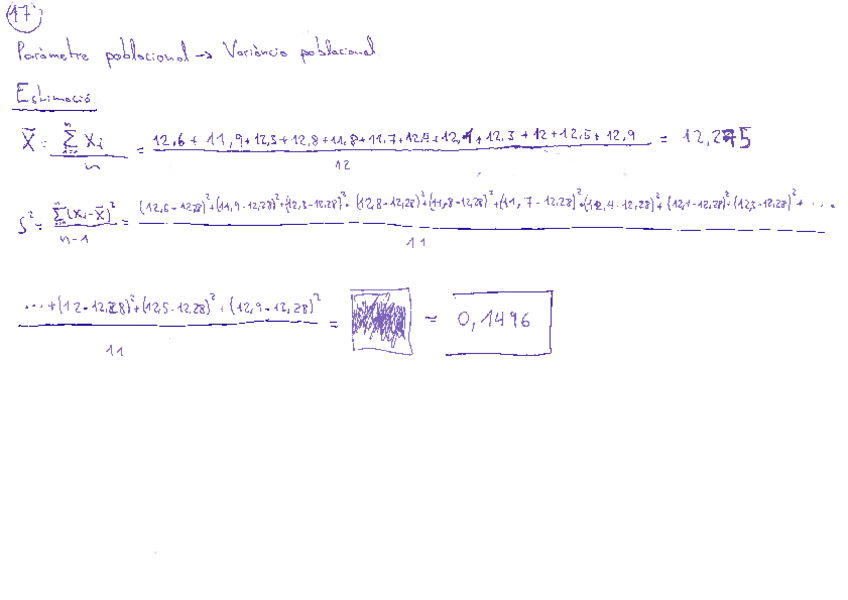 17
Paràmetre poblacional → Variància poblacional
Estimació
X̄ = \frac{\sum_{i=1}^{n} X_i}{n} = \frac{12,6 + 11,9 + 12,3 + 12,8 + 11,8 + 11,7 + 12,4 + 12,1 + 12,3 + 12 + 12,5 + 12,9}{12} = 12,275
S² = \frac{\sum_{i=1}^{n} (X_i - X̄)²}{n-1} = \frac{(12,6 - 12,28)² + (11,9 - 12,28)² + (12,3 - 12,28)² + (12,8 - 12,28)² + (11,8 - 12,28)² + (11,7 - 12,28)² + (12,4 - 12,28)² + (12,1 - 12,28)² + (12,3 - 12,28)² + ...}{11}
\frac{... + (12 - 12,28)² + (12,5 - 12,28)² + (12,9 - 12,28)²}{11} = = 0,1496